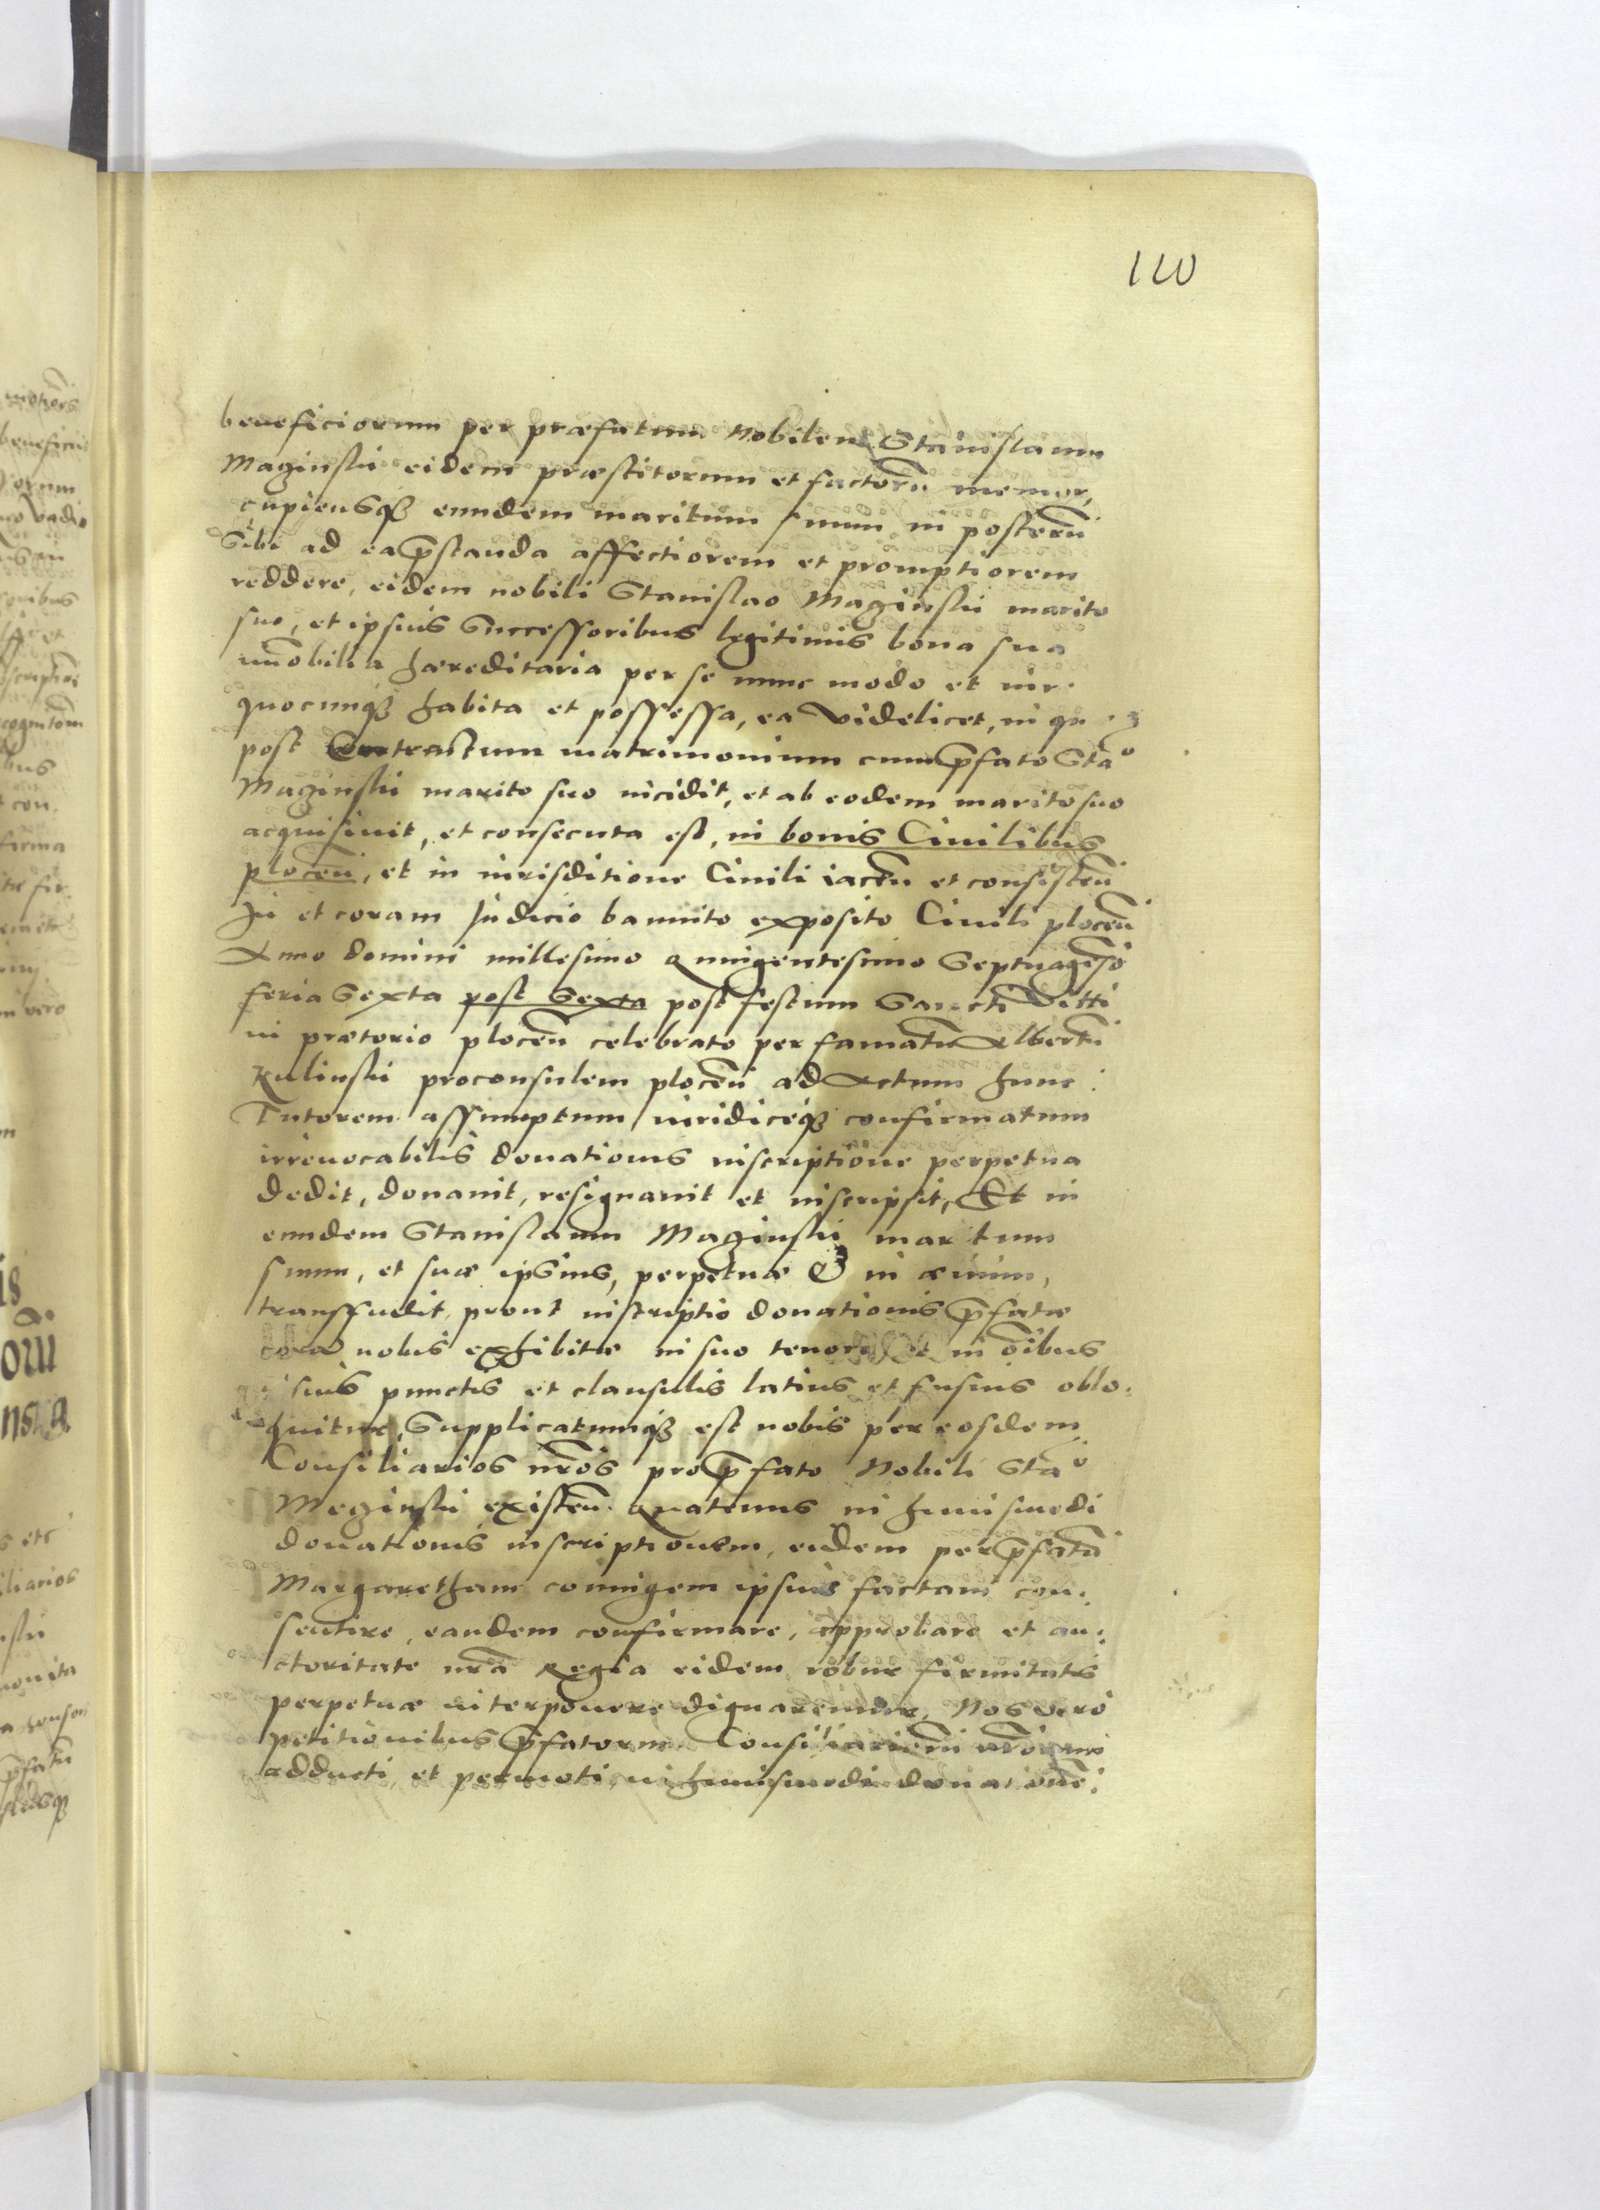 110
beneficiorum per præfatum Nobilem Stanislaum
Maginski eidem præstitorum et factorũ memor,
cupiensq₃ eundem maritum suum in posterũ
sibi ad ea p̄standa affectiorem et promptiorem
reddere, eidem nobili Stanislao Maginski marito
suo, et ipsius Successoribus legitimis bona sua
im̃obilia hæreditaria per se nunc modo et
quocunq₃ habita et possessa, ea videlicet, in
post Contractum matrimonium cum p̄fato Staᵒ
Maginski marito suo incidit, et ab eodem marito suo
acquisiuit, et consecuta est, in bonis Ciuilibus
plocen̄, et in iurisditione Ciuili iacen̄ et consisten̄
In et coram Iudicio bannito exposito Ciuili plocen̄
Anno domini millesimo quingentesimo Septuages̃o
feria Sexta post Sexta post festum Sancti Viti
in prætorio plocen̄ celebrato per famatũ Albertũ
Rulinski proconsulem plocen̄ ad Actum hunc
Tutorem assumptum iuridiceq₃ confirmatum
irreuocabilis donationis inscriptione perpetua
dedit, donauit, resignauit et inscripsit, Et in
eundem Stanislaum Maginski maritum
suum, et suæ ipsius, perpetuæ & in æuum,
transfudit, prout inscriptio donationis p̄fatæ
corã nobis exhibitæ in suo tenore et in õibus
suis punctis et clausulis latius et fusius oblo-
quitur, Supplicatumq₃ est nobis per eosdem
Consiliarios nr̃os pro p̄fato Nobili Staᵒ
Meginski existen̄. quatenus in huiusmodi
donationis inscriptionem, eidem per p̄fatã
Margaretham coniugem ipsius factam con-
sentire, eandem confirmare, approbare et au-
ctoritate nr̃a Regia eidem robur firmitatis
perpetuæ interponere dignaremur, Nos vero
petitionibus p̄fatorum Consiliariorũ nr̃orum
adducti, et permoti, in huiusmodi donationẽ